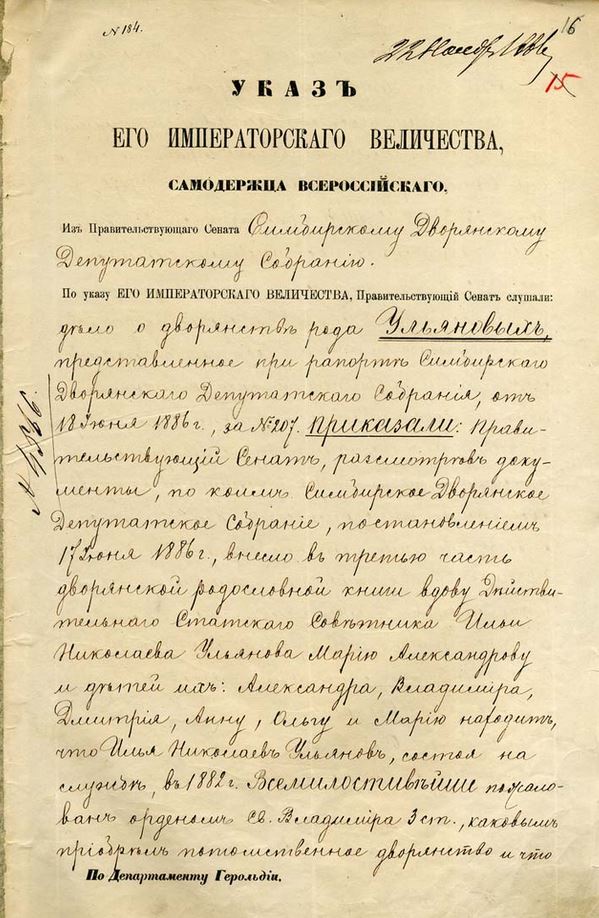 № 184.
16
22 Ноябр 1886
15
УКАЗЪ
ЕГО ИМПЕРАТОРСКАГО ВЕЛИЧЕСТВА,
САМОДЕРЖЦА ВСЕРОССІЙСКАГО,
Изъ Правительствующаго Сената Симбирскому Дворянскому
Депутатскому Собранію.
По указу ЕГО ИМПЕРАТОРСКАГО ВЕЛИЧЕСТВА, Правительствующій Сенатъ слушали:
дѣло о дворянствѣ рода Ульяновыхъ,
представленное при рапортѣ Симбирскаго
Дворянскаго Депутатскаго Собранія, отъ
18 Іюня 1886 г., за № 207. Приказали: Прави-
тельствующій Сенатъ, разсмотрѣвъ доку-
менты, по коимъ Симбирское Дворянское
Депутатское Собраніе, постановленіемъ
17 Іюня 1886 г., внесло въ третью часть
дворянской родословной книги вдову Дѣйстви-
тельнаго Статскаго Совѣтника Ильи
Николаева Ульянова Марію Александрову
и дѣтей ихъ: Александра, Владиміра,
Дмитрія, Анну, Ольгу и Марію находитъ,
что Илья Николаевъ Ульяновъ, состоя на
службѣ, въ 1882 г. Всемилостивѣйше пожало-
ванъ орденомъ Св. Владиміра 3 ст., каковымъ
пріобрѣлъ потомственное дворянство и что
По Департаменту Герольдіи.